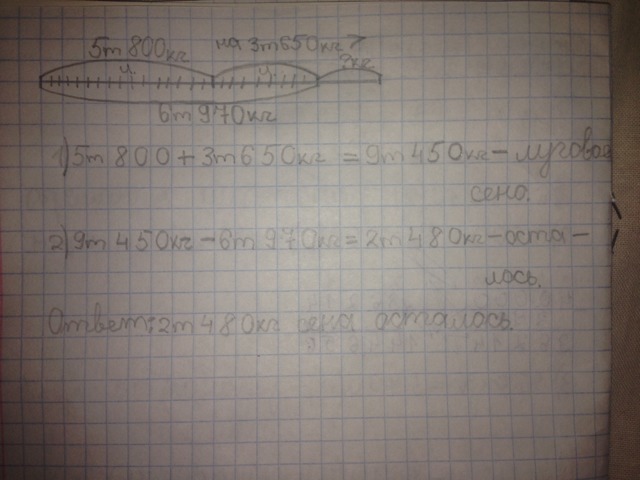 5т 800кг на 3т650кг >
ч. ч. ?кг
6т 970кг
1) 5т 800 + 3т 650кг = 9т 450кг - лугова
сено.
2) 9т 450кг - 6т 970кг = 2т 480кг - оста -
лось.
Ответ: 2т 480кг сена осталось.